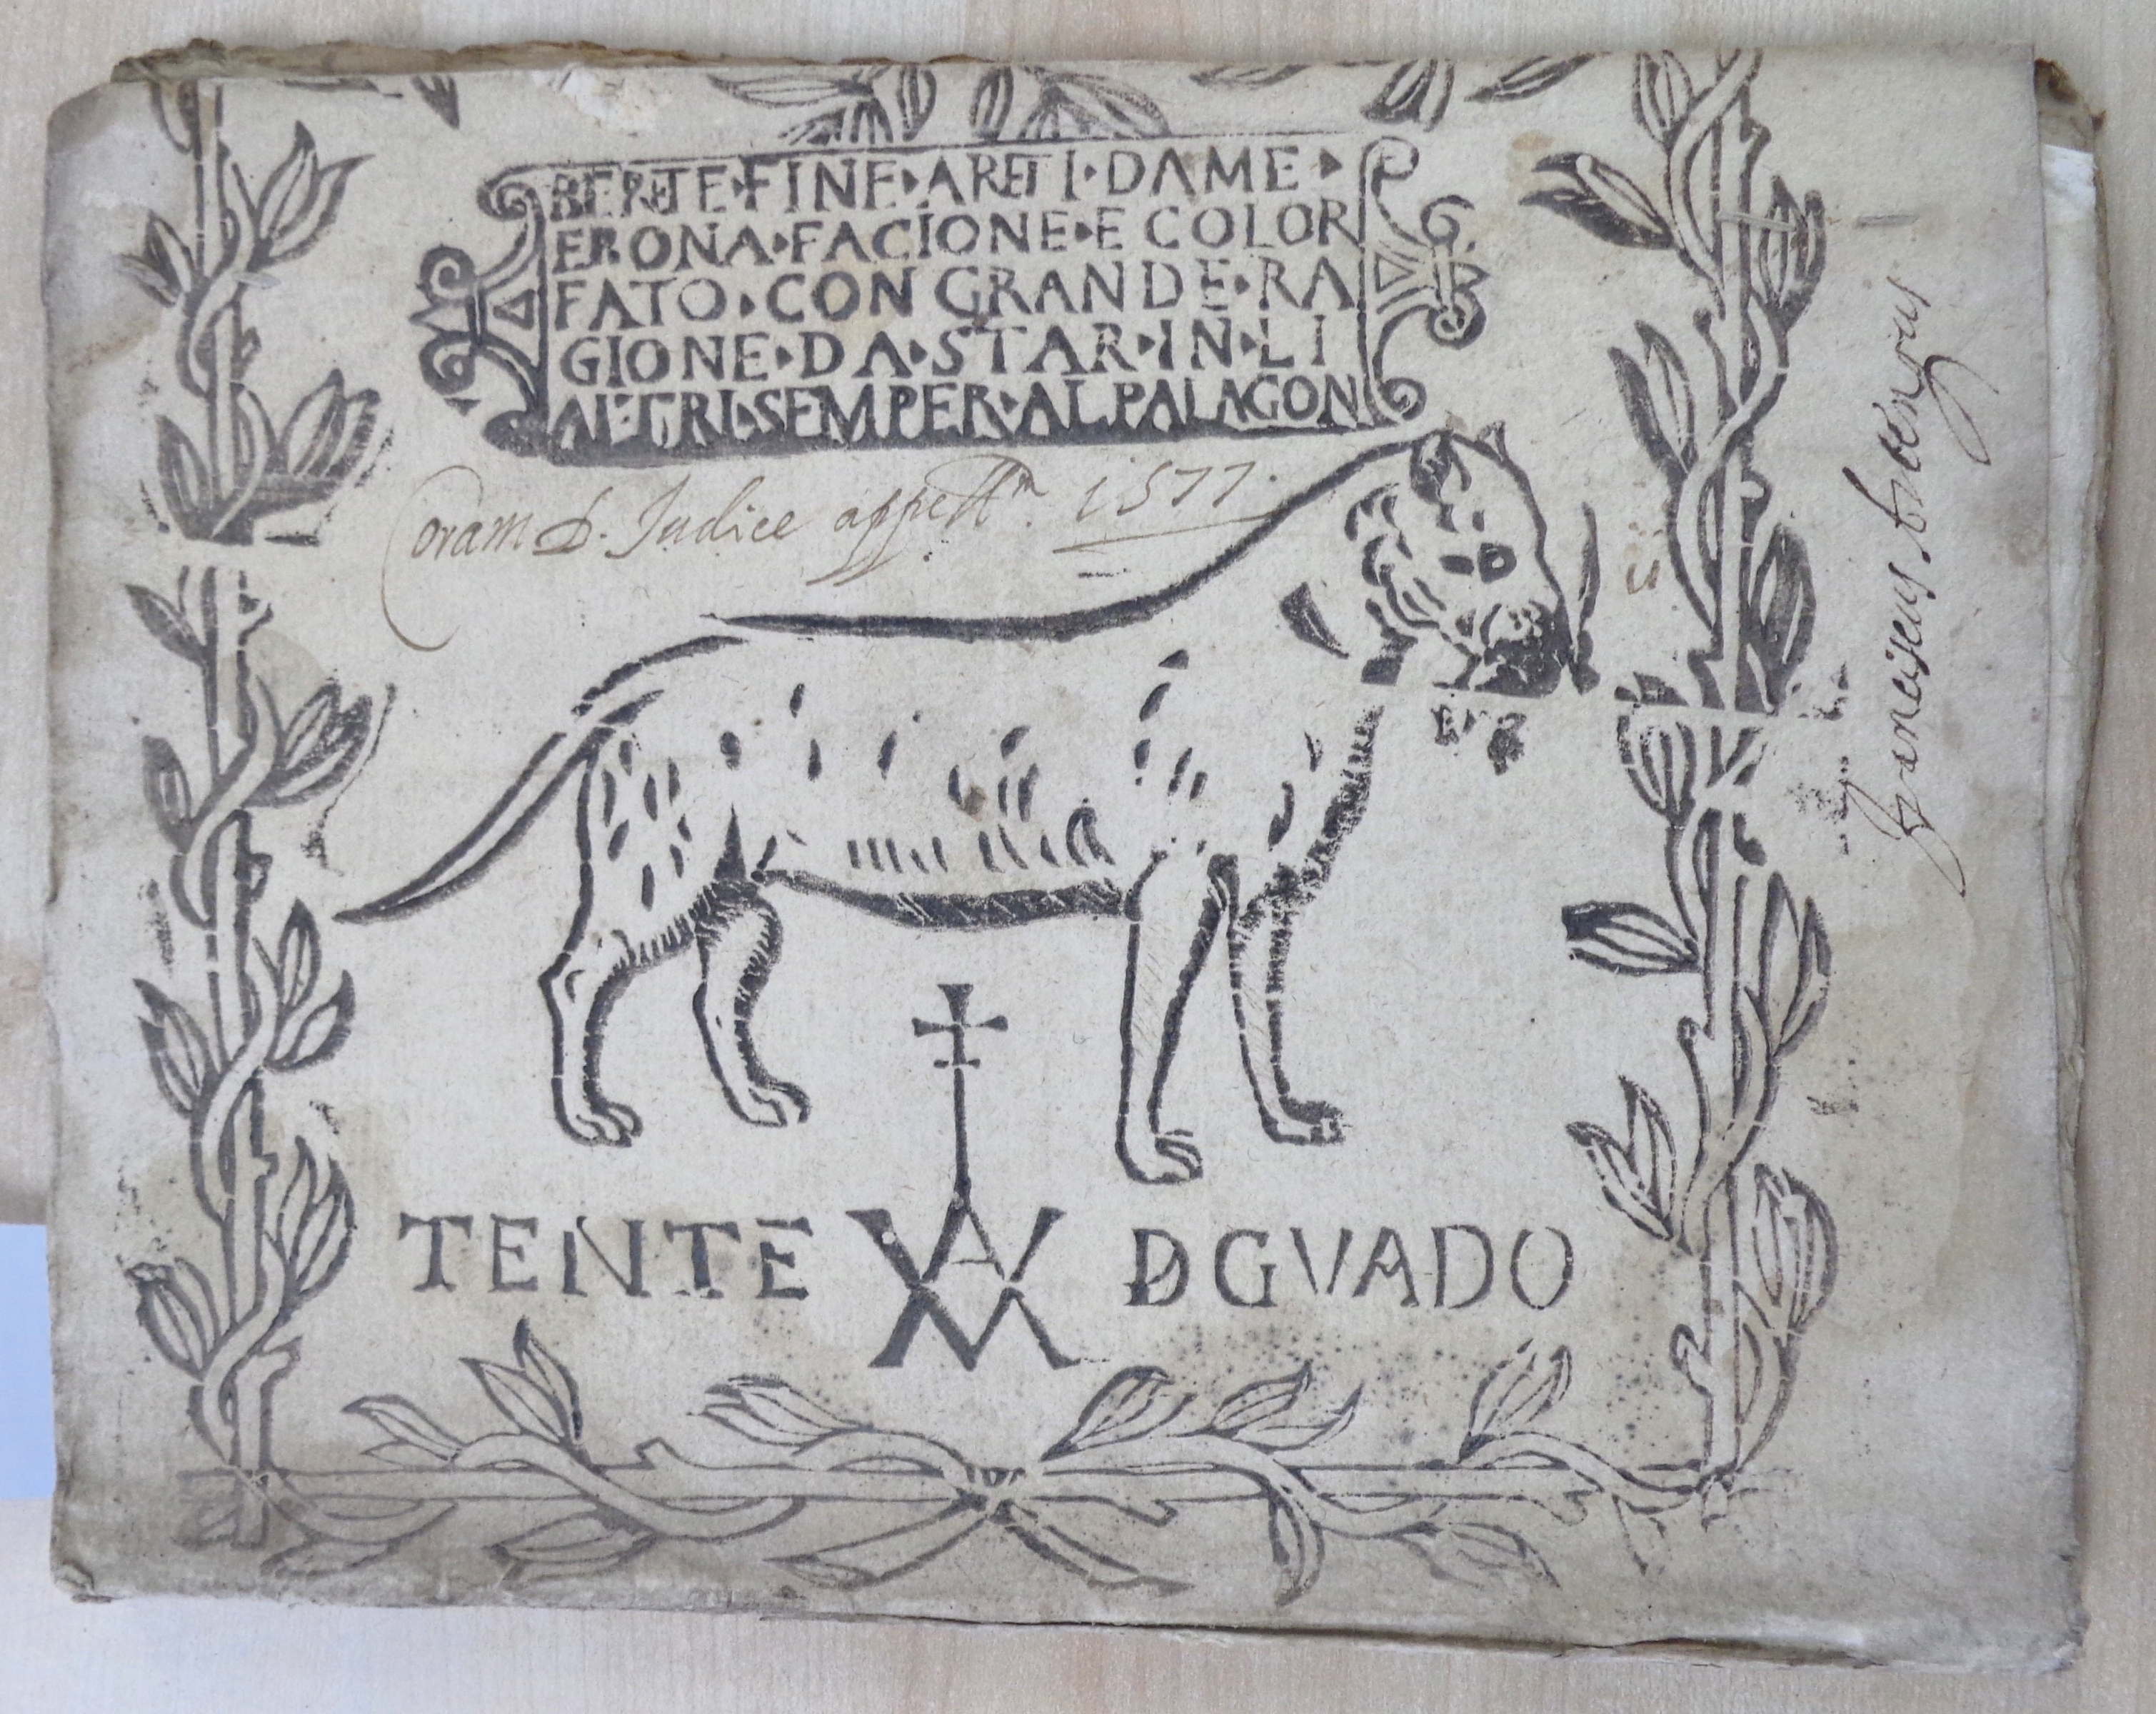 BERETE·FINE·ARETI·DAME·
ERONA·FACIONE·E COLOR
FATO·CON GRANDE·RA
GIONE·DA·STAR·IN·LI
ALTRI·SEMPER·AL PALAGON
G.
B
Coram D. Judice appell.m 1577.
TENTE VAM D GVADO
Franciscus